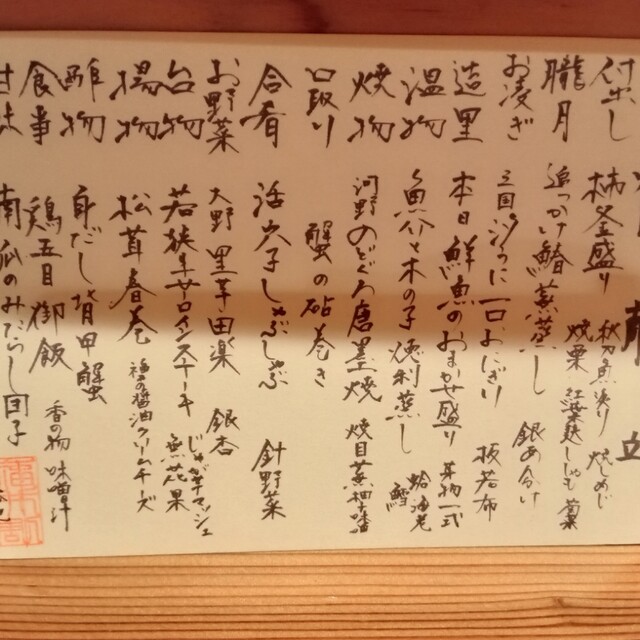 献立
付出し 柿釜盛り 秋刀魚
焼栗 菊菜
朧月 追っかけ鰆蕪蒸し 銀あん分け
お凌ぎ 三国 一口おにぎり 板若布
造里 本日鮮魚のおまかせ盛り 妻物一式
温物 魚介と木の子徳利蒸し 蛤 海老 鱈
焼物 河野のどぐろ唐墨焼 焼目蕪
口取り 蟹の砧巻き
合肴 活穴子しゃぶしゃぶ 針野菜
お野菜 大野里芋田楽 銀杏
台物 若狭牛サーロインステーキ じゃが芋マッシュ 無花果
揚物 松茸春巻 醤油クリームチーズ
酢物 背甲蟹
食事 鶏五目御飯 香の物 味噌汁
甘味 南瓜のみたらし団子